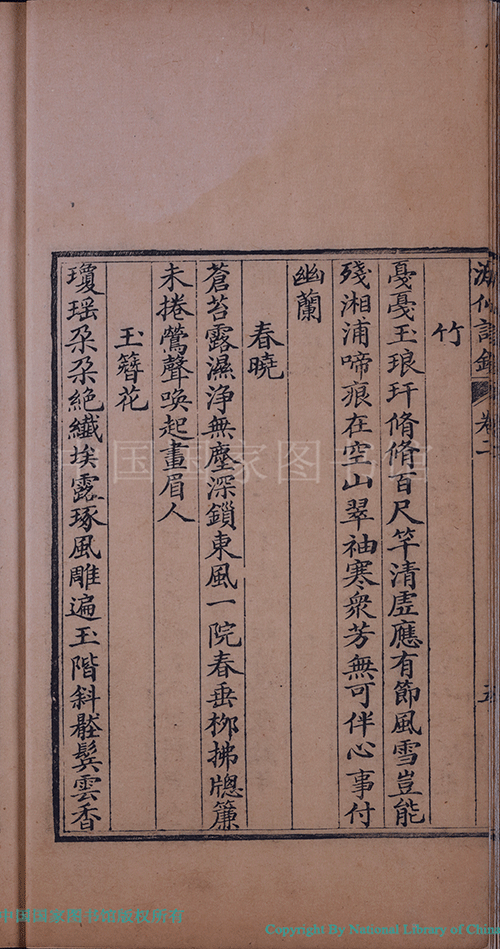 竹
戞戞玉琅玕脩脩百尺竿清虛應有節風雪豈能
殘湘浦啼痕在空山翠袖寒衆芳無可伴心事付
幽蘭
春曉
蒼苔露濕浄無塵深鎖東風一院春垂桞拂牕簾
未捲鶯聲喚起畫眉人
玉簪花
瓊瑶朶朶絶纖埃露琢風雕遍玉階斜嚲鬓雲香
卷二
中国国家图书馆
中国国家图书馆版权所有
Copyright By National Library of China